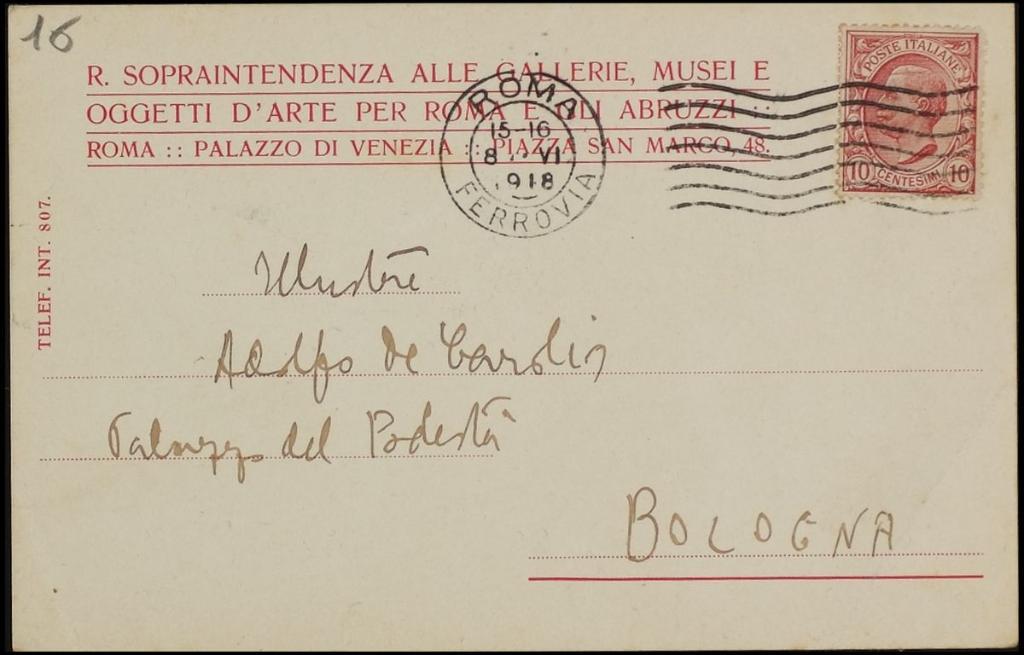 16
R. SOPRAINTENDENZA ALLE GALLERIE, MUSEI E
OGGETTI D'ARTE PER ROMA E GLI ABRUZZI ::
ROMA :: PALAZZO DI VENEZIA :: PIAZZA SAN MARCO, 48.
TELEF. INT. 807.
ROMA
15-16
8 VI
1918
FERROVIA
POSTE ITALIANE
10 CENTESIMI 10
Illustre
Adolfo de Carolis
Palazzo del Podestà
BOLOGNA